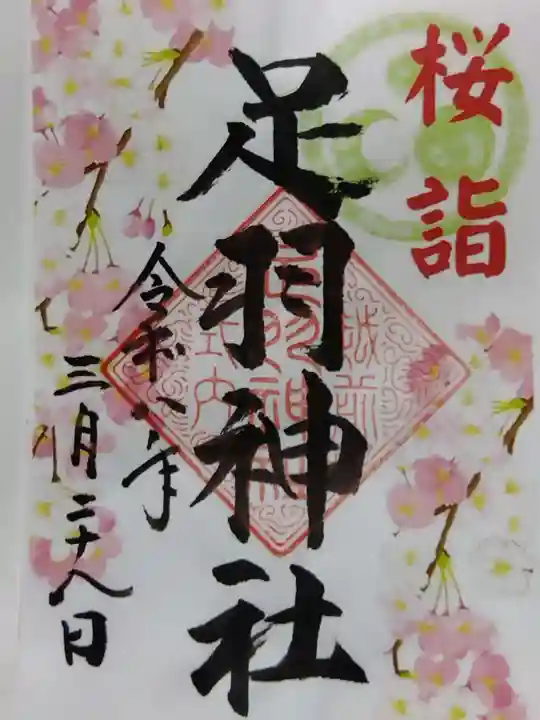 桜詣
足羽神社
越前
足羽神社
式内
令和八年
三月二十八日